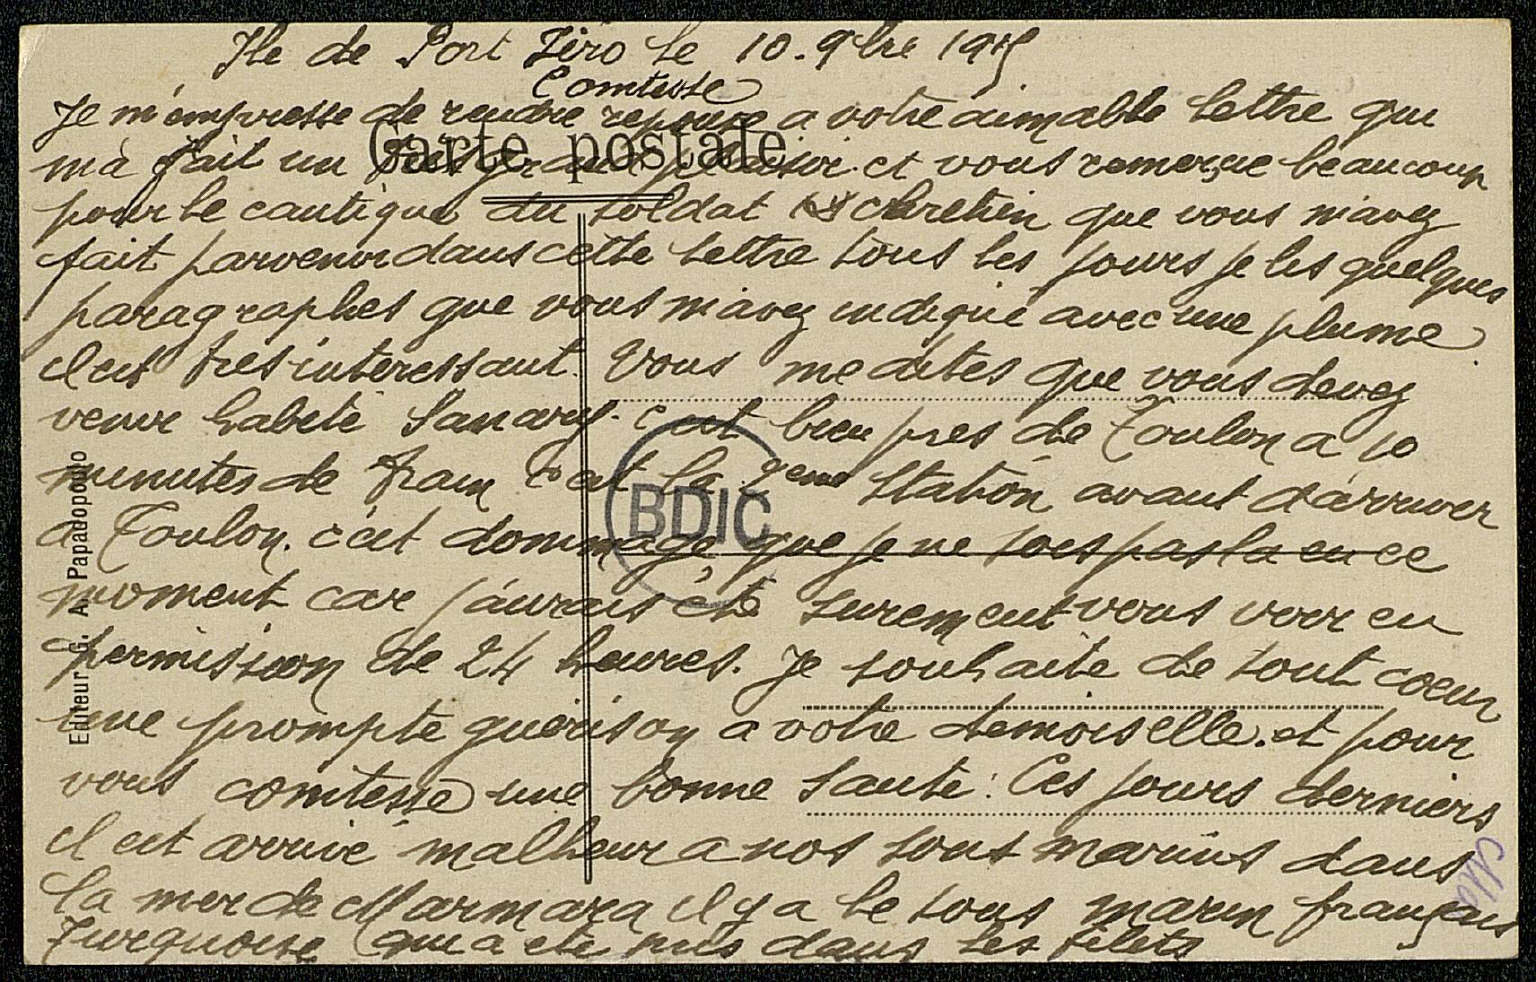 Ile de Port Zéro le 10. 9bre 1915
Comtesse
Je m'empresse de rendre reponse a votre aimable lettre qui
Carte postale
m'a fait un plus grand plaisir. et vous remerçie beaucoup
pour le cantique du soldat chretien que vous m'avez
fait parvenir dans cette lettre tous les jours je lis quelques
paragraphes que vous m'avez indiqué avec une plume
il est tres interessant. Vous me dites que vous devez
venir habité Sanary. c'est bien pres de Toulon a 10
minutes de train c'est la 2eme station avant d'arriver
a Toulon. c'est dommage que je ne sois pas la en ce
moment car j'aurais été surement vous voir en
permission de 24 heures. Je souhaite de tout coeur
une prompte guérison a votre demoiselle. et pour
vous comtesse une bonne santé. Ces jours derniers
il est arrivé malheur a nos sous marins dans
la mer de Marmara il y a le sous marin français
Turquoise qui a été pris dans les filets
BDIC
Editeur G. A. Papadopoulo